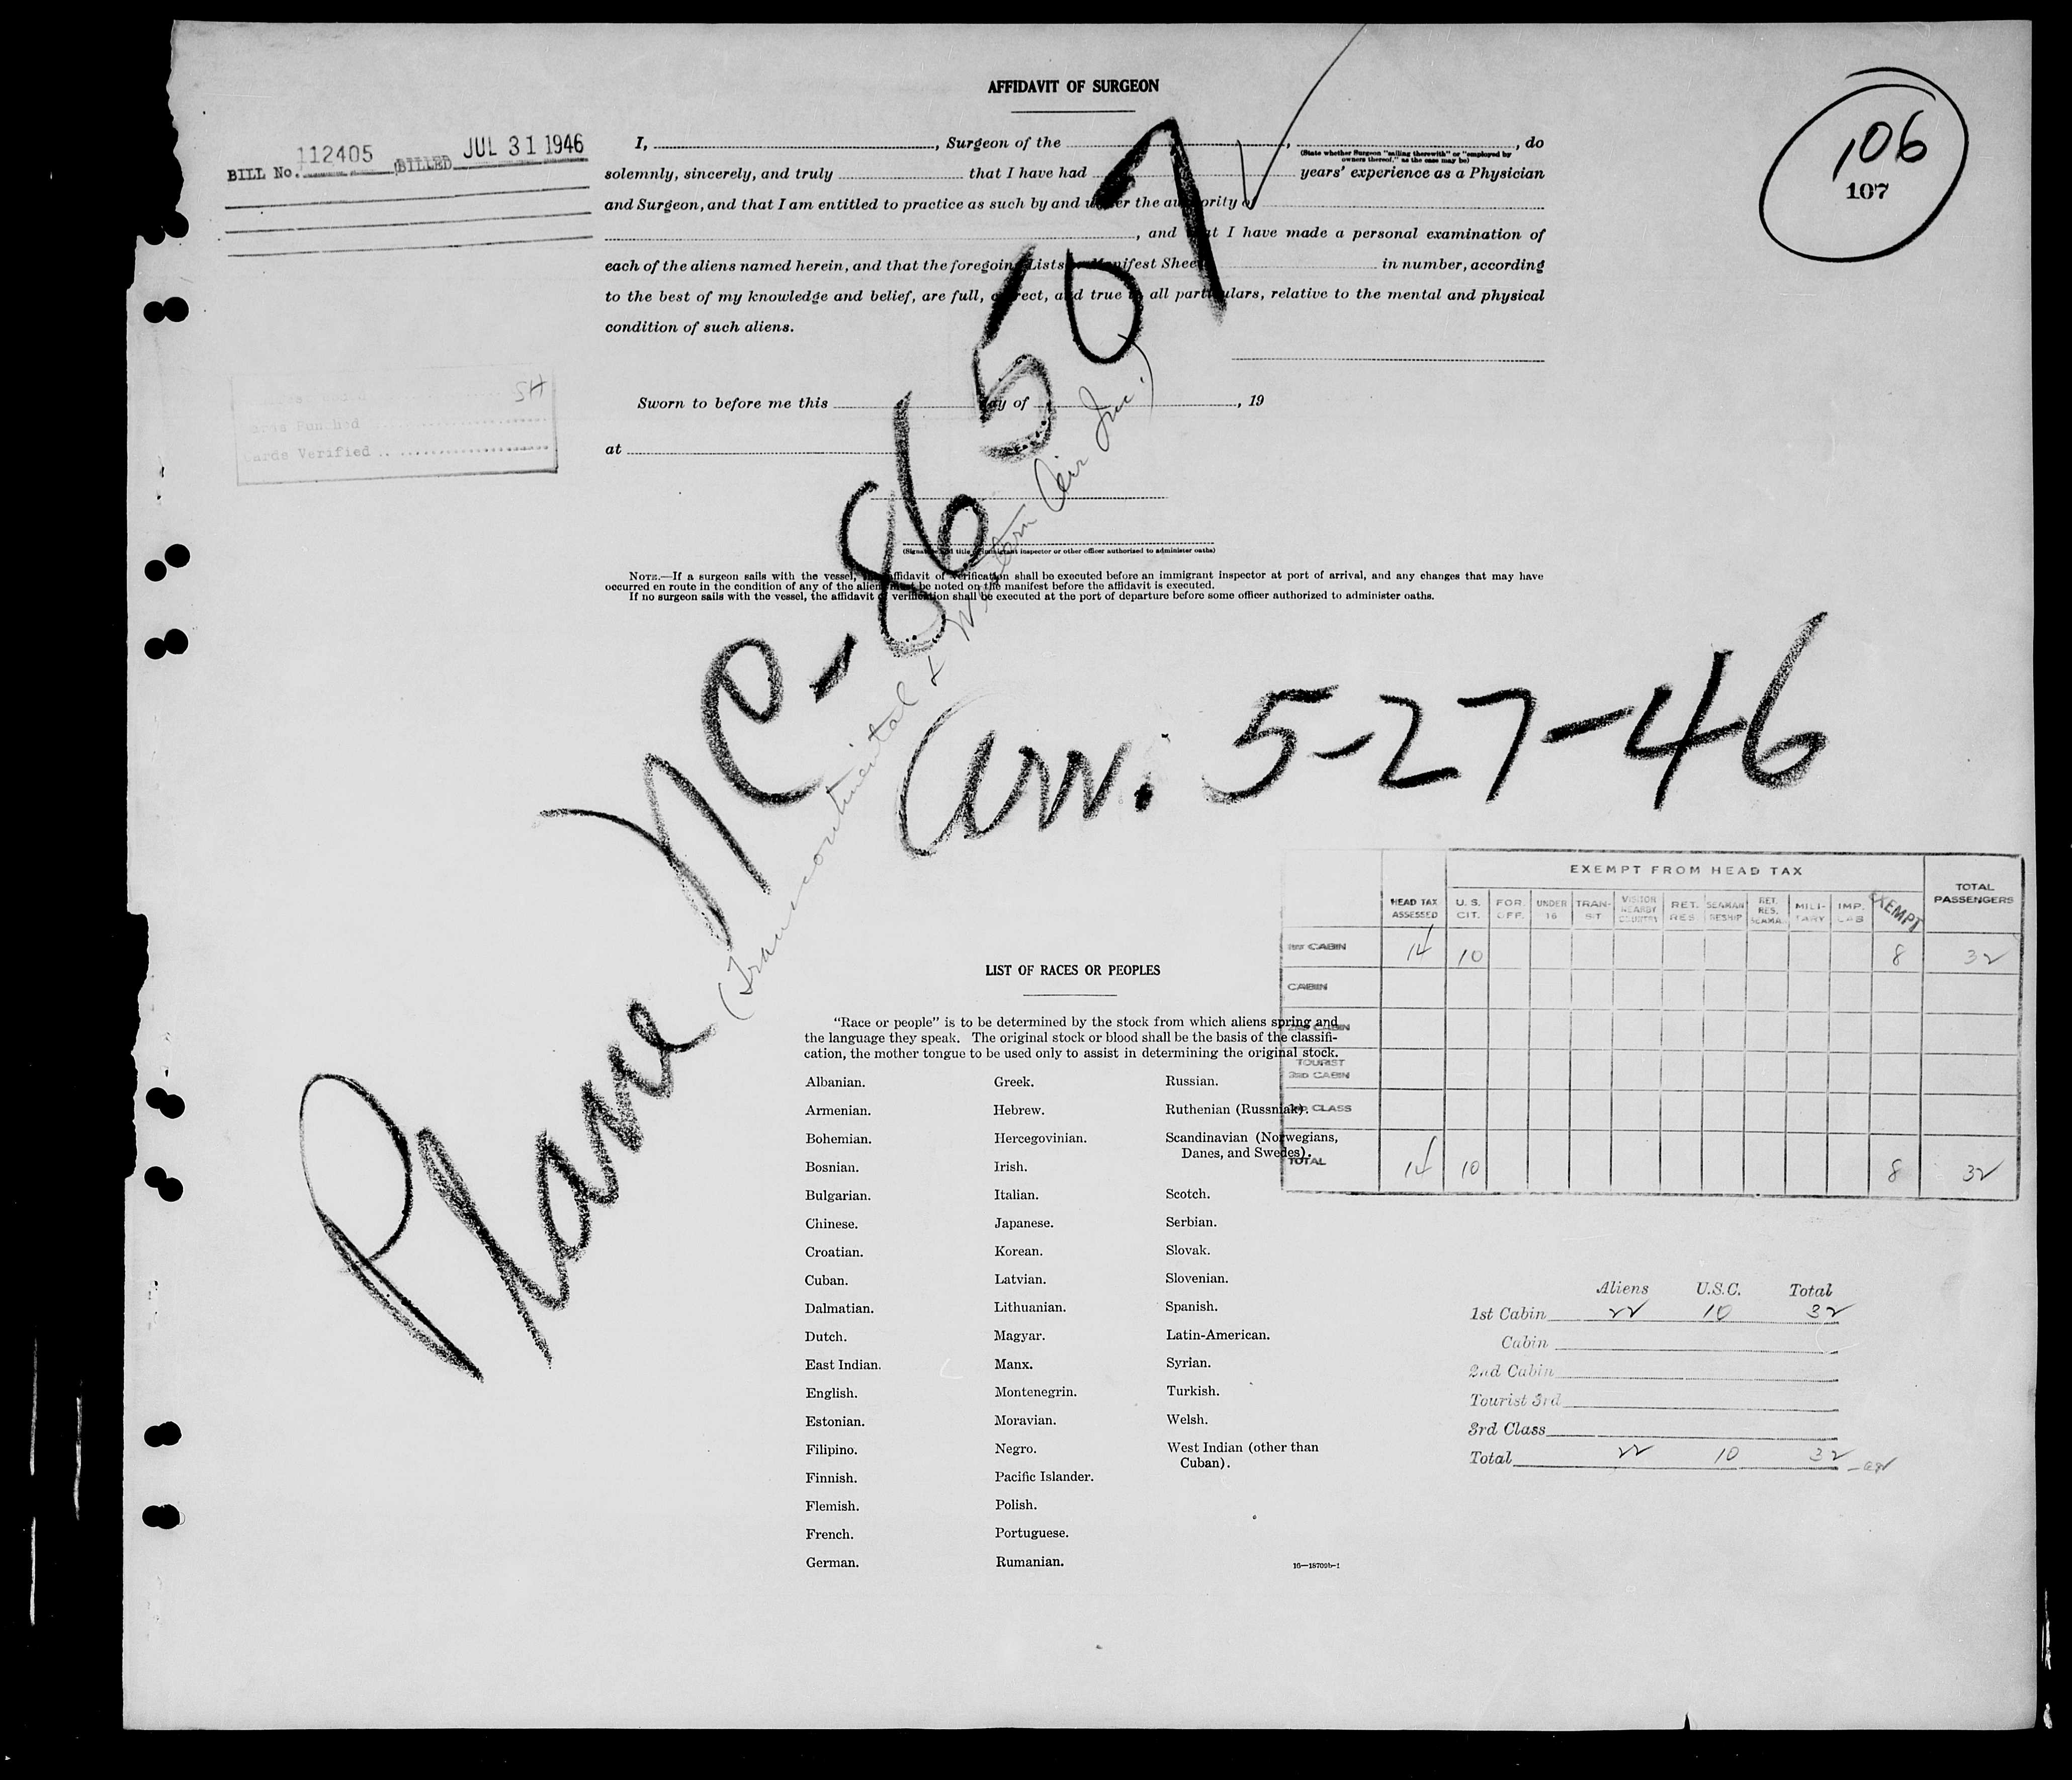 AFFIDAVIT OF SURGEON
106
107
BILL No. 112405 BILLED JUL 31 1946
I, , Surgeon of the , , do
(State whether Surgeon "sailing therewith" or "employed by
owners thereof," as the case may be)
solemnly, sincerely, and truly that I have had years' experience as a Physician
and Surgeon, and that I am entitled to practice as such by and under the authority of
, and that I have made a personal examination of
each of the aliens named herein, and that the foregoing Lists Manifest Sheets in number, according
to the best of my knowledge and belief, are full, correct, and true in all particulars, relative to the mental and physical
condition of such aliens.
SH
Cards Punched
Cards Verified
Sworn to before me this day of , 19
at
(Signature and title of immigrant inspector or other officer authorized to administer oaths)
NOTE.—If a surgeon sails with the vessel, the affidavit of verification shall be executed before an immigrant inspector at port of arrival, and any changes that may have
occurred en route in the condition of any of the aliens must be noted on the manifest before the affidavit is executed.
If no surgeon sails with the vessel, the affidavit of verification shall be executed at the port of departure before some officer authorized to administer oaths.
Plane NC-86507
(Transcontinental & Western Air Inc.)
Arr. 5-27-46
EXEMPT FROM HEAD TAX
HEAD TAX ASSESSED U. S. CIT. FOR. OFF. UNDER 16 TRANSIT VISITOR NEARBY COUNTRY RET. RES. SEAMAN RESHIP RET. RES. SEAMA. MILITARY IMP. LAB EXEMPT TOTAL PASSENGERS
1ST CABIN 14 10 8 32
CABIN
2ND CABIN
TOURIST
3RD CABIN
3RD CLASS
TOTAL 14 10 8 32
LIST OF RACES OR PEOPLES
"Race or people" is to be determined by the stock from which aliens spring and
the language they speak. The original stock or blood shall be the basis of the classifi-
cation, the mother tongue to be used only to assist in determining the original stock.
Albanian.
Armenian.
Bohemian.
Bosnian.
Bulgarian.
Chinese.
Croatian.
Cuban.
Dalmatian.
Dutch.
East Indian.
English.
Estonian.
Filipino.
Finnish.
Flemish.
French.
German.
Greek.
Hebrew.
Hercegovinian.
Irish.
Italian.
Japanese.
Korean.
Latvian.
Lithuanian.
Magyar.
Manx.
Montenegrin.
Moravian.
Negro.
Pacific Islander.
Polish.
Portuguese.
Rumanian.
Russian.
Ruthenian (Russniak).
Scandinavian (Norwegians,
Danes, and Swedes).
Scotch.
Serbian.
Slovak.
Slovenian.
Spanish.
Latin-American.
Syrian.
Turkish.
Welsh.
West Indian (other than
Cuban).
16—18709b-1
Aliens U.S.C. Total
1st Cabin 22 10 32
Cabin
2nd Cabin
Tourist 3rd
3rd Class
Total 22 10 32